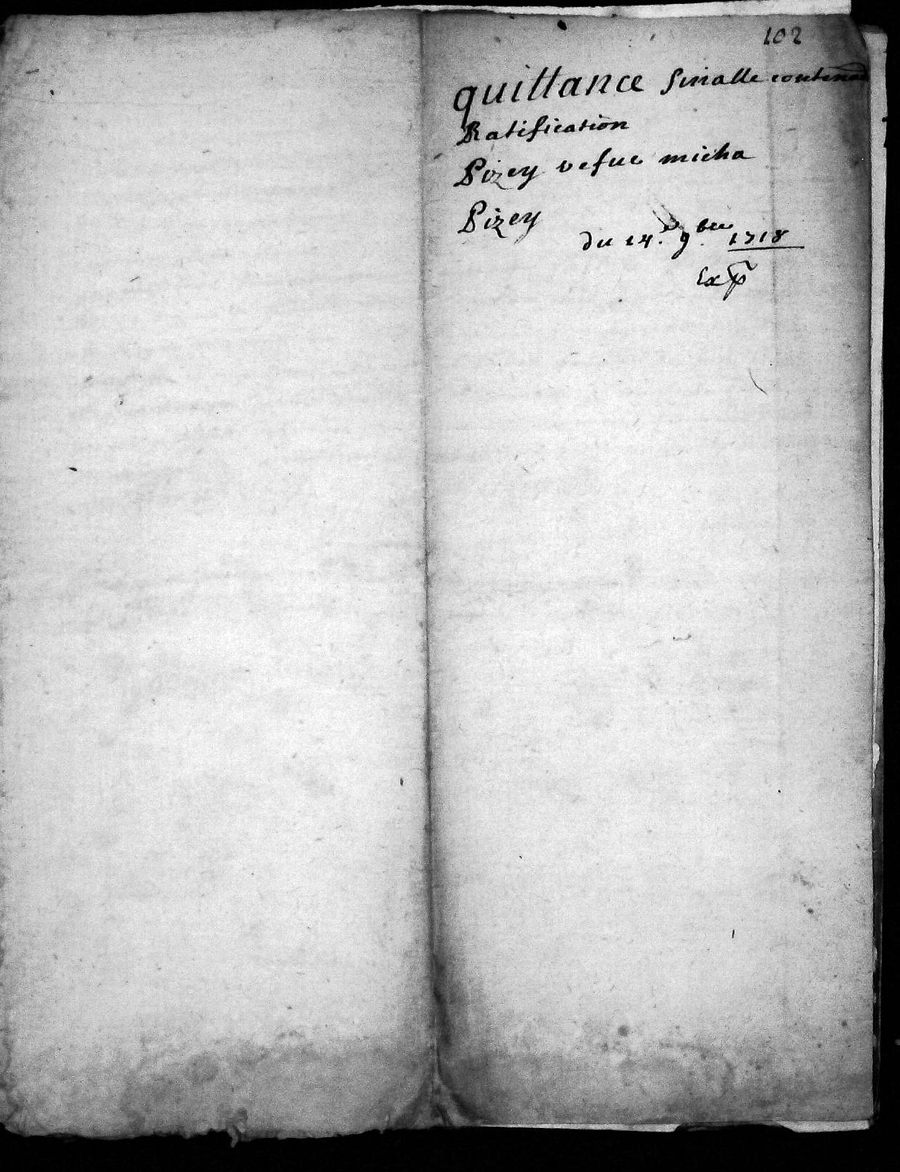 102
quittance finalle contenant
Ratification
Pizey vefue micha
Pizey
du 14.e 9.bre 1718
Exp